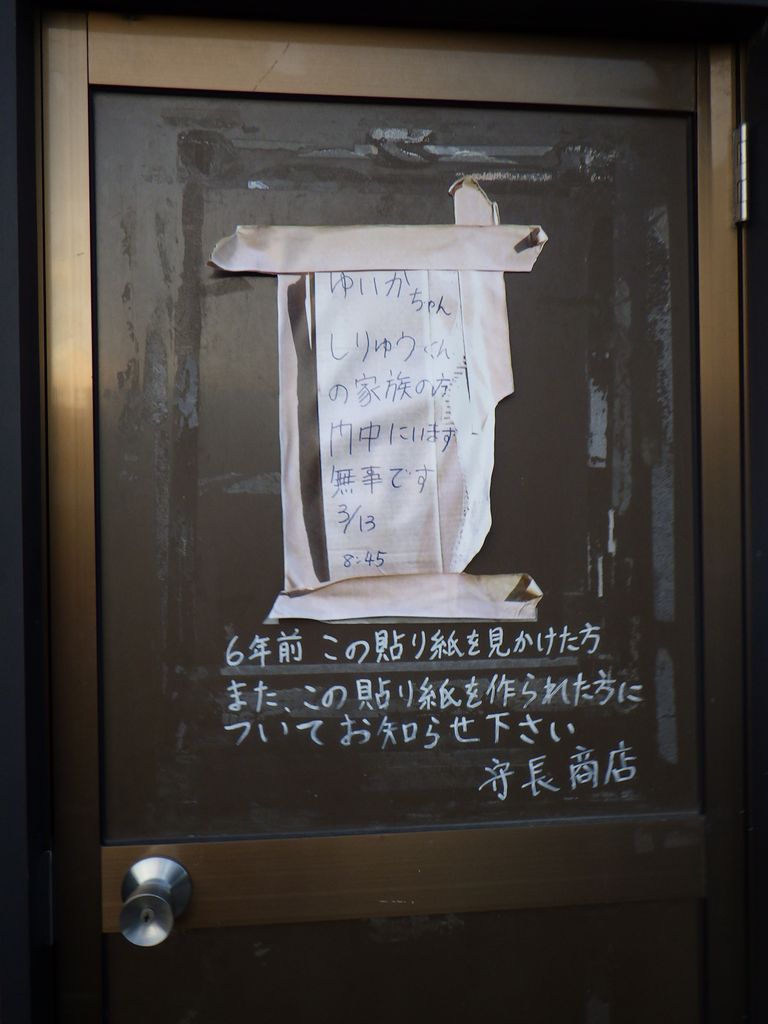 ゆいかちゃん
しりゅうくん
の家族の方
門中にいます
無事です
3/13
8:45
6年前 この貼り紙を見かけた方
また、この貼り紙を作られた方に
ついてお知らせ下さい
守長商店